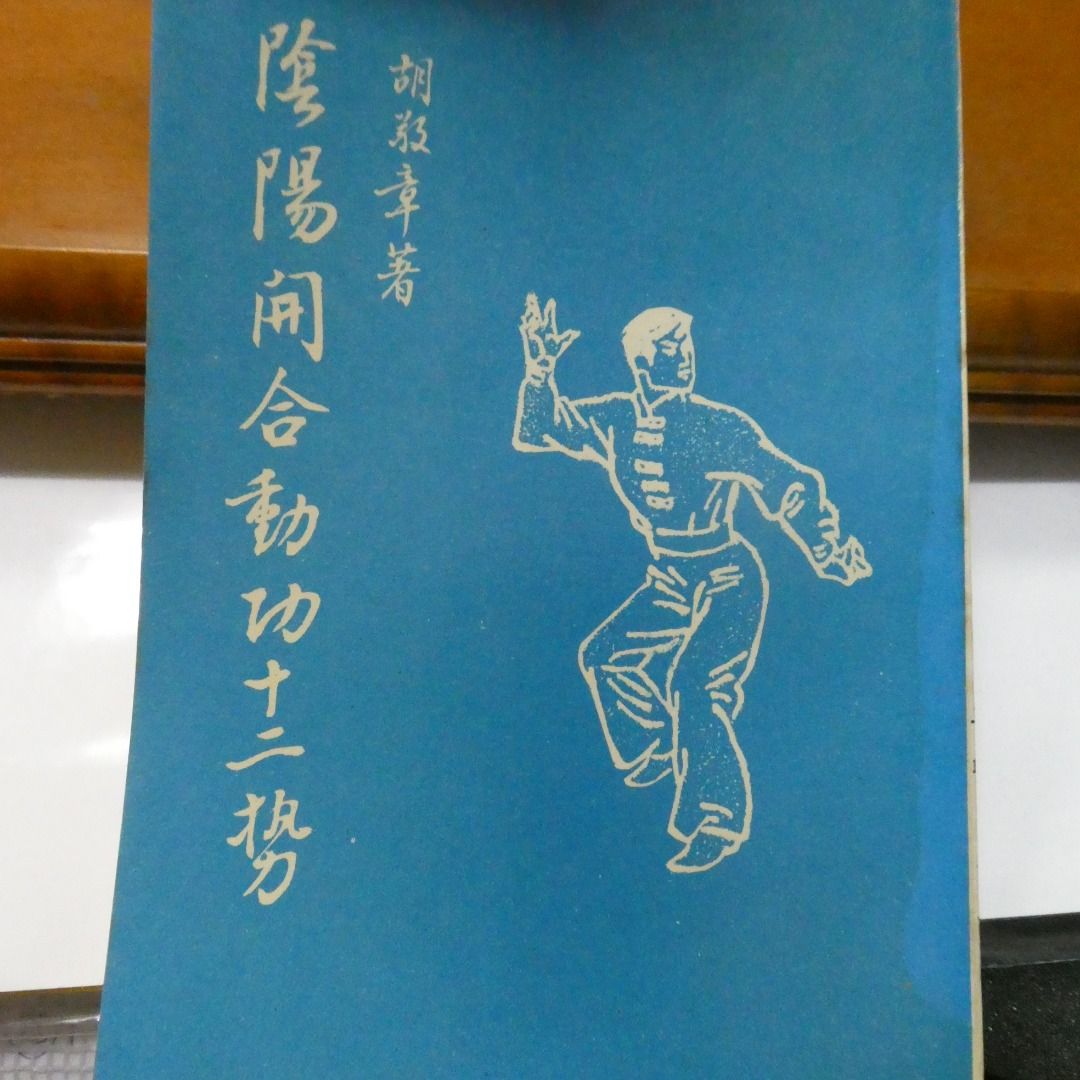 胡敬章著
陰陽開合動功十二势